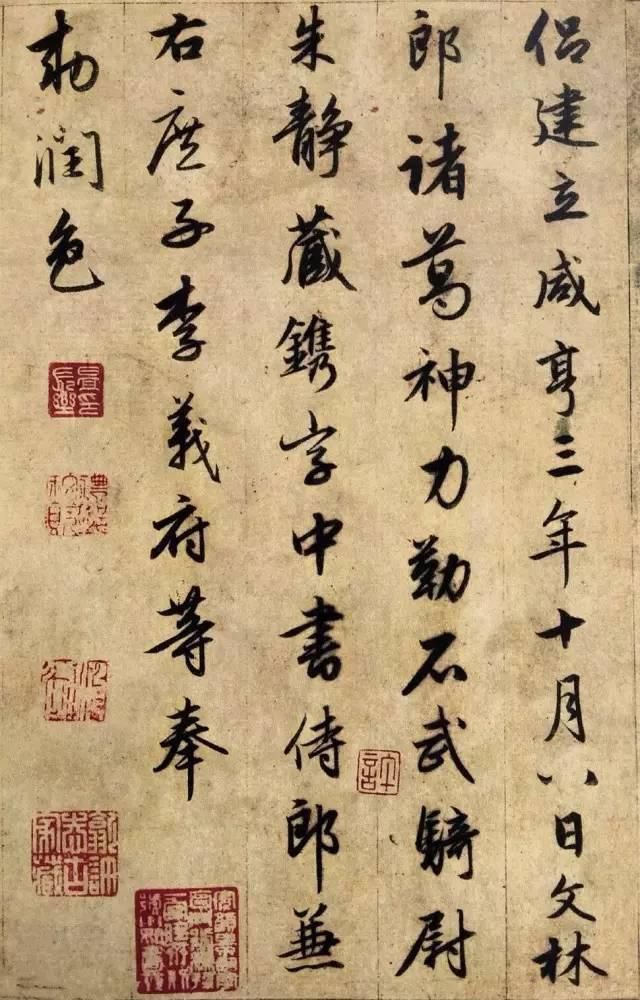 侣建立咸亨三年十月八日文林
郎諸葛神力勒石武騎尉
朱静藏鐫字中書侍郎兼
右庶子李義府等奉
勅潤色